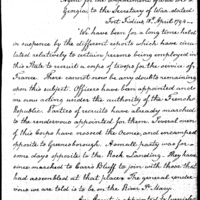 Agent for the Department
Georgia, to the Secretary of War dated
Fort Fidius 18 April 1794.
We have been for a long time kept
in suspence by the different reports which have circu
lated relatively to certain persons being employed in
this State to recruit a corps of troops for the service of
France. There cannot now be any doubts remaining
upon this subject. Officers have been appointed and
are now acting under the authority of the French
Republic. Parties of recruits have already marched
to the rendezvous appointed for them. Several men
of this Corps have crossed the Oconee, and encamped
opposite to Greensborough. A small party was for
some days opposite to the Rock Landing. They have
since marched to Carr's Bluff to join with those that
had assembled at that place. The general rendez
vous we are told is to be on the River St. Mary.
An Agent is appointed to furnish